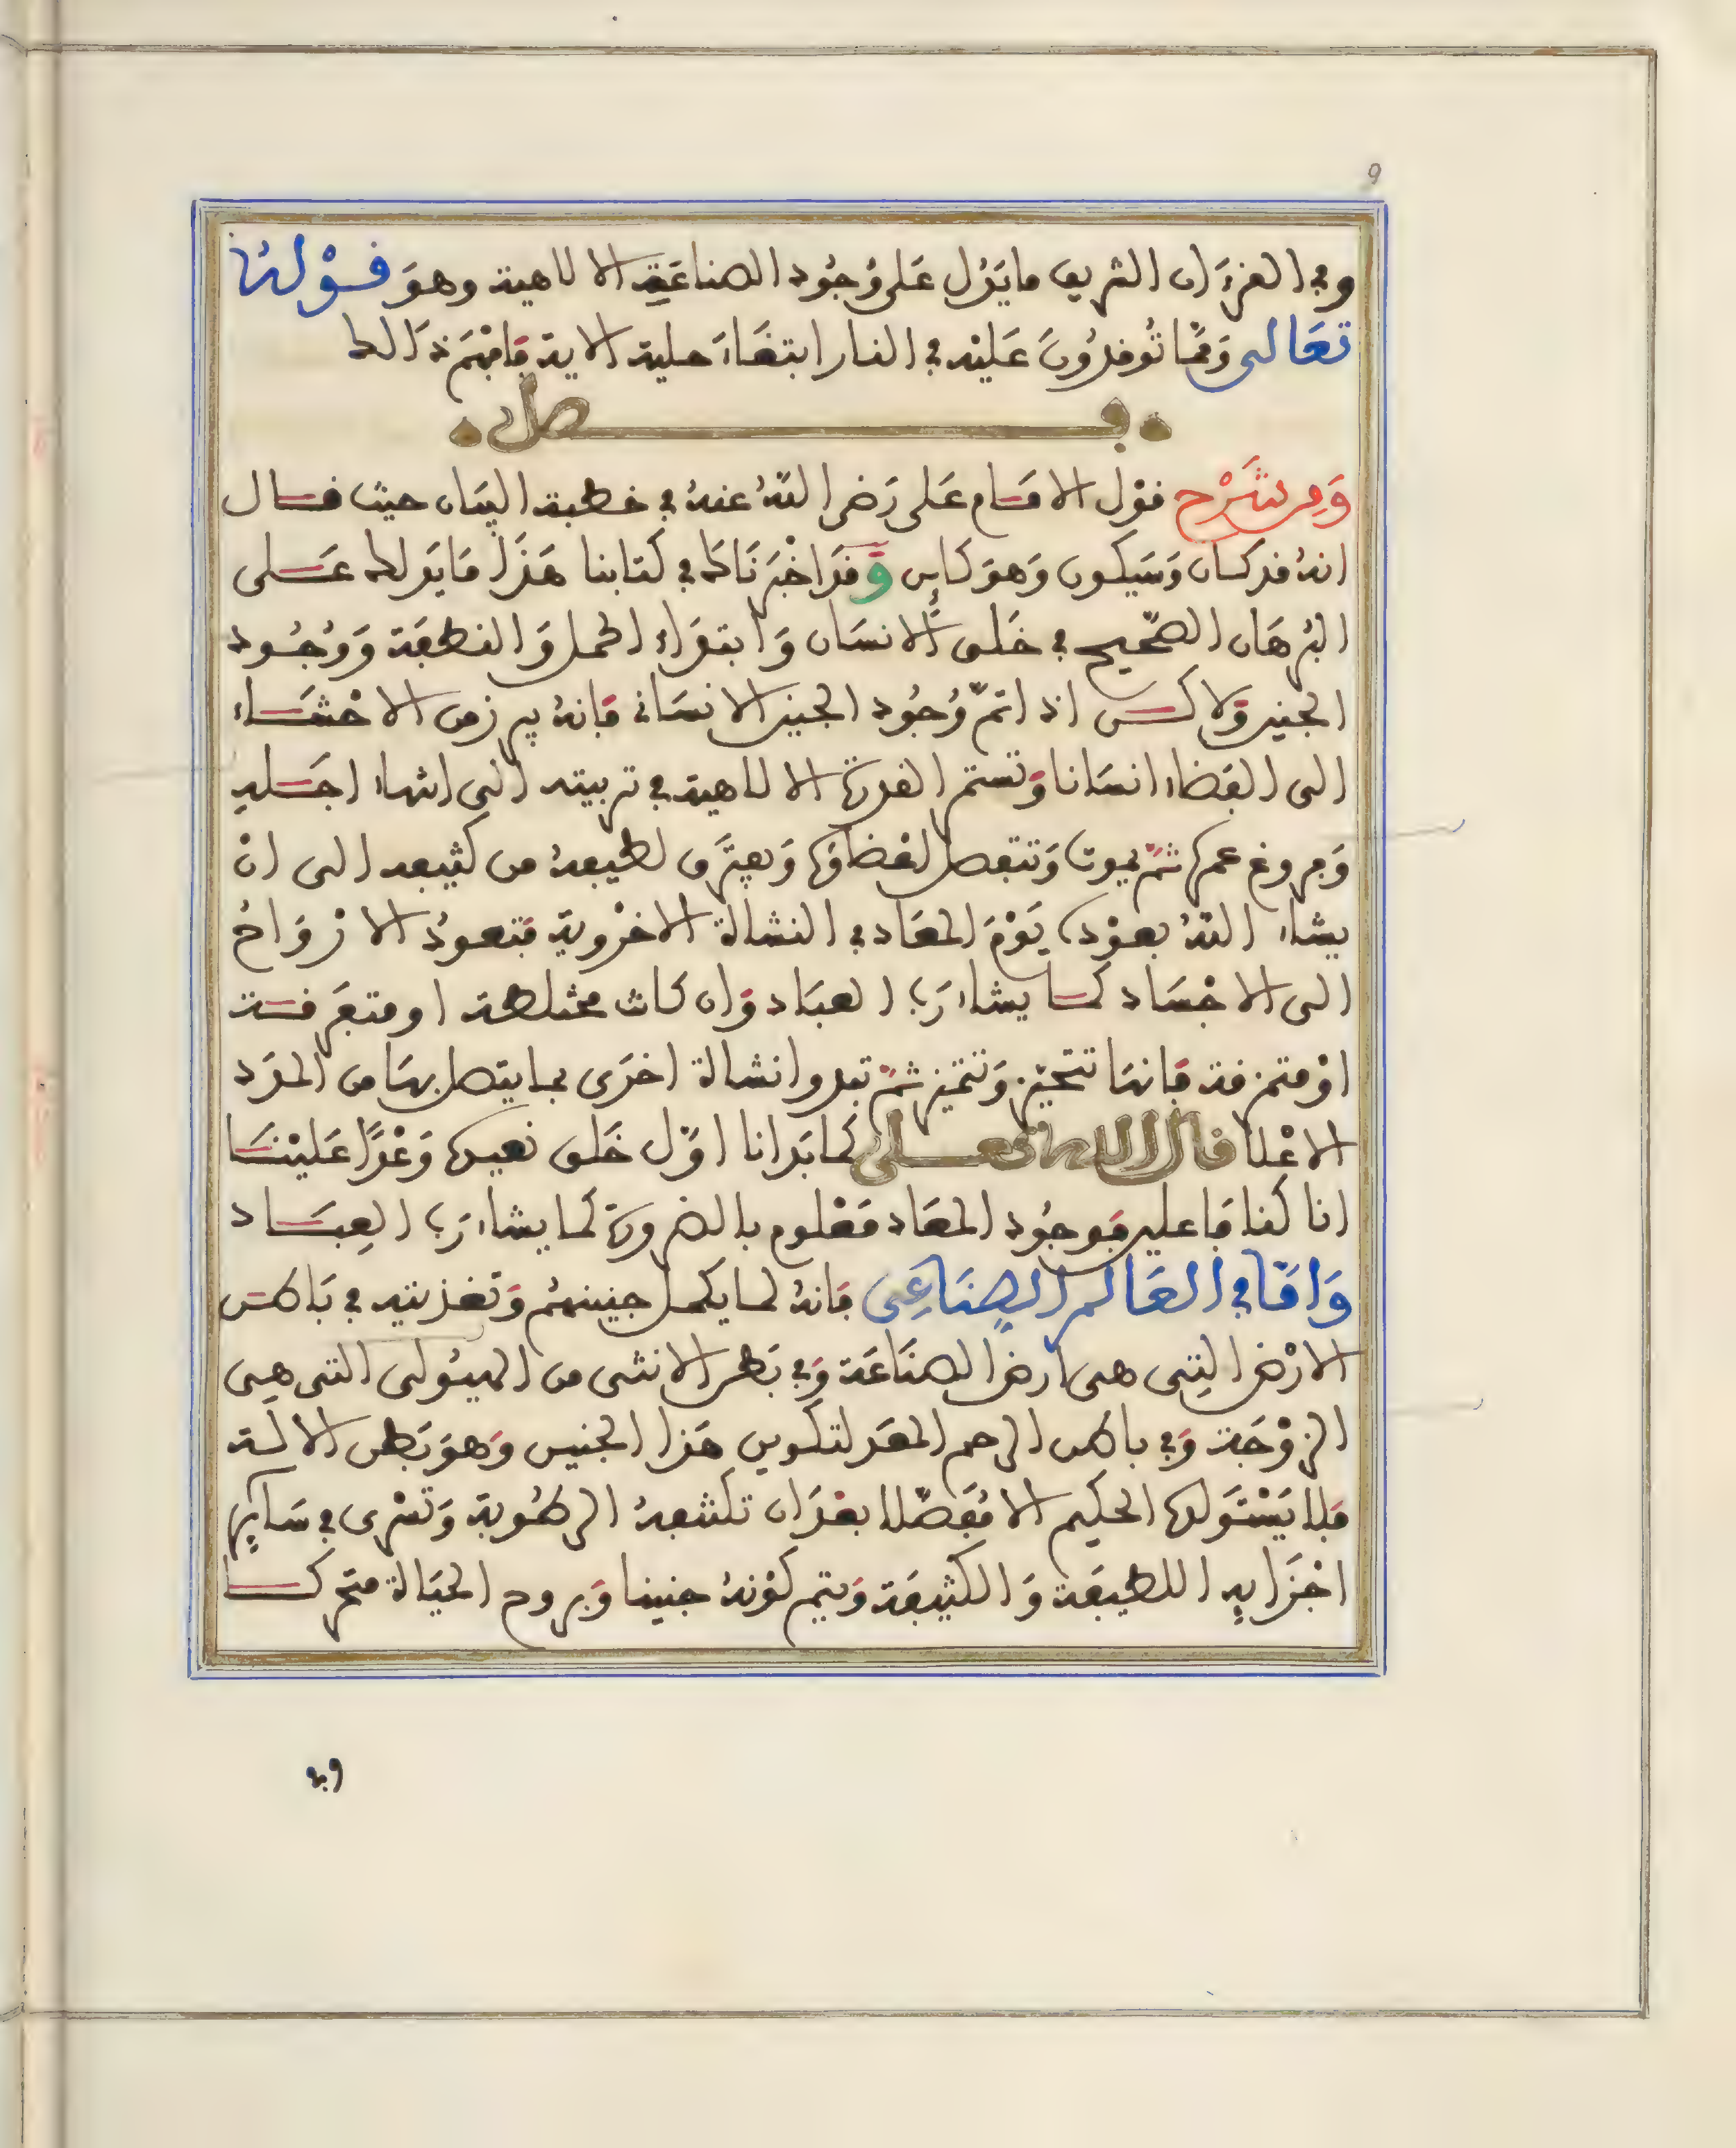 9
وفي القرءان الشريف ما يَدُل عَلى وُجُود الصناعَةِ الالاهية وهوَ قَوْلهُ
تعَالى وَممّا تُوقدُونَ عَليْه في النار ابتغَاءَ حلية الاية فافهَم ذَالك
فصل
وَمن شَرْح قوْل الامَام عَلى رَضى اللهُ عنهُ في خطبة البيَان حيث قال
انهُ قد كان وَسَيكون وَهوَ كَاين وَقدَ اخْبرنَاك في كتابنا هَذَا مَا يَدلك عَلى
البُرهَان الصّحِيح في خَلق الانسَان وَابتدَاء الحمل وَالنطفَة وَوُجُود
الجنين ولاكن اذا تمّ وُجُود الجنين الانسَانى فانهُ يبرز من الاحْشَاء
الى الفضاء انسَانا وَتستمر القدرة الالاهية في تربيته الى انتهاء اجَله
وَفروغ عمره ثمّ يموت وَتنفصل اعْضاؤه وَيفترَق لطيفهُ من كثيفه الى انْ
يشاء اللهُ بعوْده يَوْمَ المعَاد في النشأة الاخْروية فتعودُ الارْوَاحُ
الى الاجْسَاد كما يشاء رَب العبَاد وَان كانت مختلطة او متفَرقة
اوْ متمزقة فانهَا تتحيّز وَتتميز ثمّ تبدوا نشأة اخرَى بما يتصل بهَا من المدَد
الاعْلا قال الله تعالى كمَا بَدانا اوّل خَلق نعيده وَعْدًا عَليْنَا
انا كنا فاعلين فوجُود المعَاد مَعْلوم بالضرورة كما يشاء رَب العِبَاد
وَامّا في العَالم الصِناعِى فانهُ لما يكمل جنينهُم وَتغذيته في بَاطن
الارْض التِى هى ارض الصنَاعَة وَفي بَطن الانثى من الهيُولى التى هِى
الزوْجَة وَفي باطن الرحم المعَد لتكوين هَذا الجنين وَهوَ بَطن الالة
فلا يَسْتَولد الحكيم الا مُفَصّلا بعْدَ ان تكتنفهُ الرطُوبة وَتسْرى في سَاير
اجْزَايه اللطيفَة وَالكثيفَة وَيتم كوْنهُ جنينا وَبروح الحيَاة متحركا
وفى